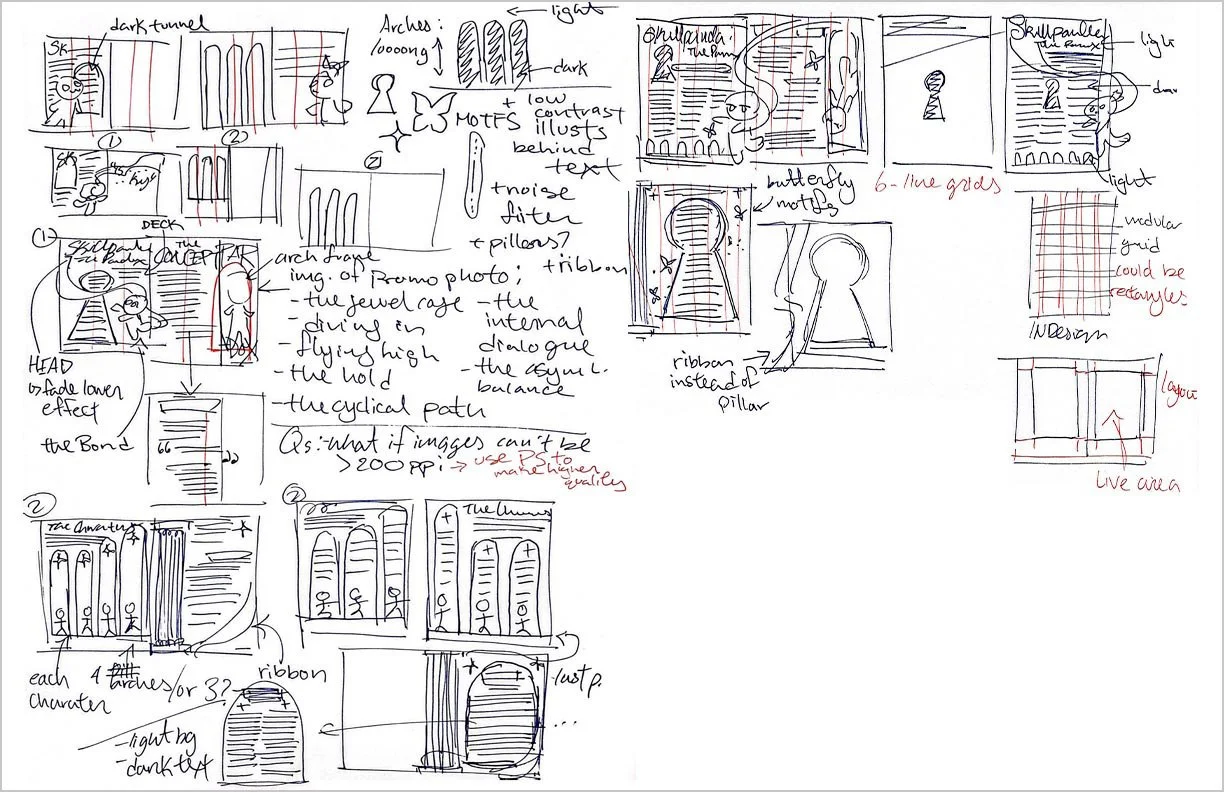 dark tunnel
SK
①
②
Arches:
loooong
light
dark
MOTFS
+ low
contrast
illusts
behind
text
+noise
filter
+pillars?
+ribbon
SK
②
①
DECK
The
CONCEPT ART
arch frame
img. of promo photo;
- the jewel case
- diving in
- flying high
- the hold
- the cyclical path
- the
internal
dialogue
- the asym.
balance
HEAD
↳ fade lower
effect
the Bond
66
Qs:-what if images can't be
>200ppi → use PS to
make higher
quality
②
The Characters
each
charater
4
arches/or 3?
ribbon
-light bg
-dark text
②
last p.
...
Skillpanda:
butterfly
motifs
6-line grids
light
light
modular
grid
could be
rectangles
INDesign
ribbon
instead of
pillar
layout
Live area